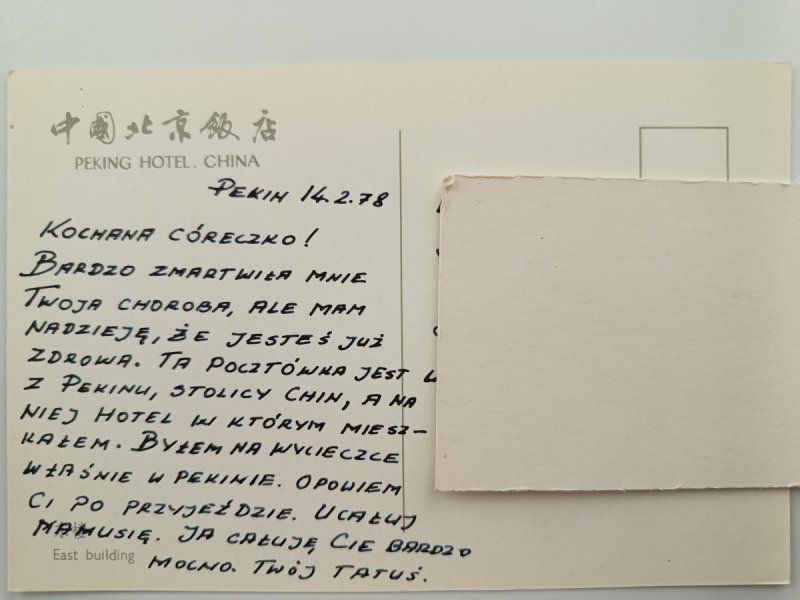 中國北京飯店
PEKING HOTEL, CHINA
PEKIN 14.2.78
KOCHANA CÓRECZKO!
BARDZO ZMARTWIŁA MNIE
TWOJA CHOROBA, ALE MAM
NADZIEJĘ, ŻE JESTEŚ JUŻ
ZDROWA. TA POCZTÓWKA JEST
Z PEKINU, STOLICY CHIN, A NA
NIEJ HOTEL W KTÓRYM MIESZ-
KAŁEM. BYŁEM NA WYCIECZCE
WŁAŚNIE W PEKINIE. OPOWIEM
CI PO PRZYJEŹDZIE. UCAŁUJ
MAMUSIĘ. JA CAŁUJĘ CIE BARDZO
East building
MOCNO. TWÓJ TATUŚ.